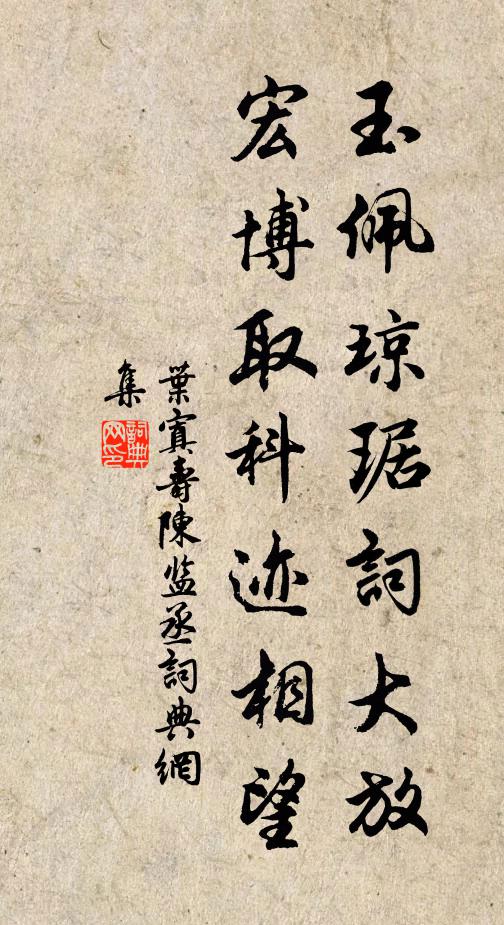 玉佩琼琚詞大放
宏博取科迹相望
葉寘壽陳监丞詞典網
集
詞典
网印